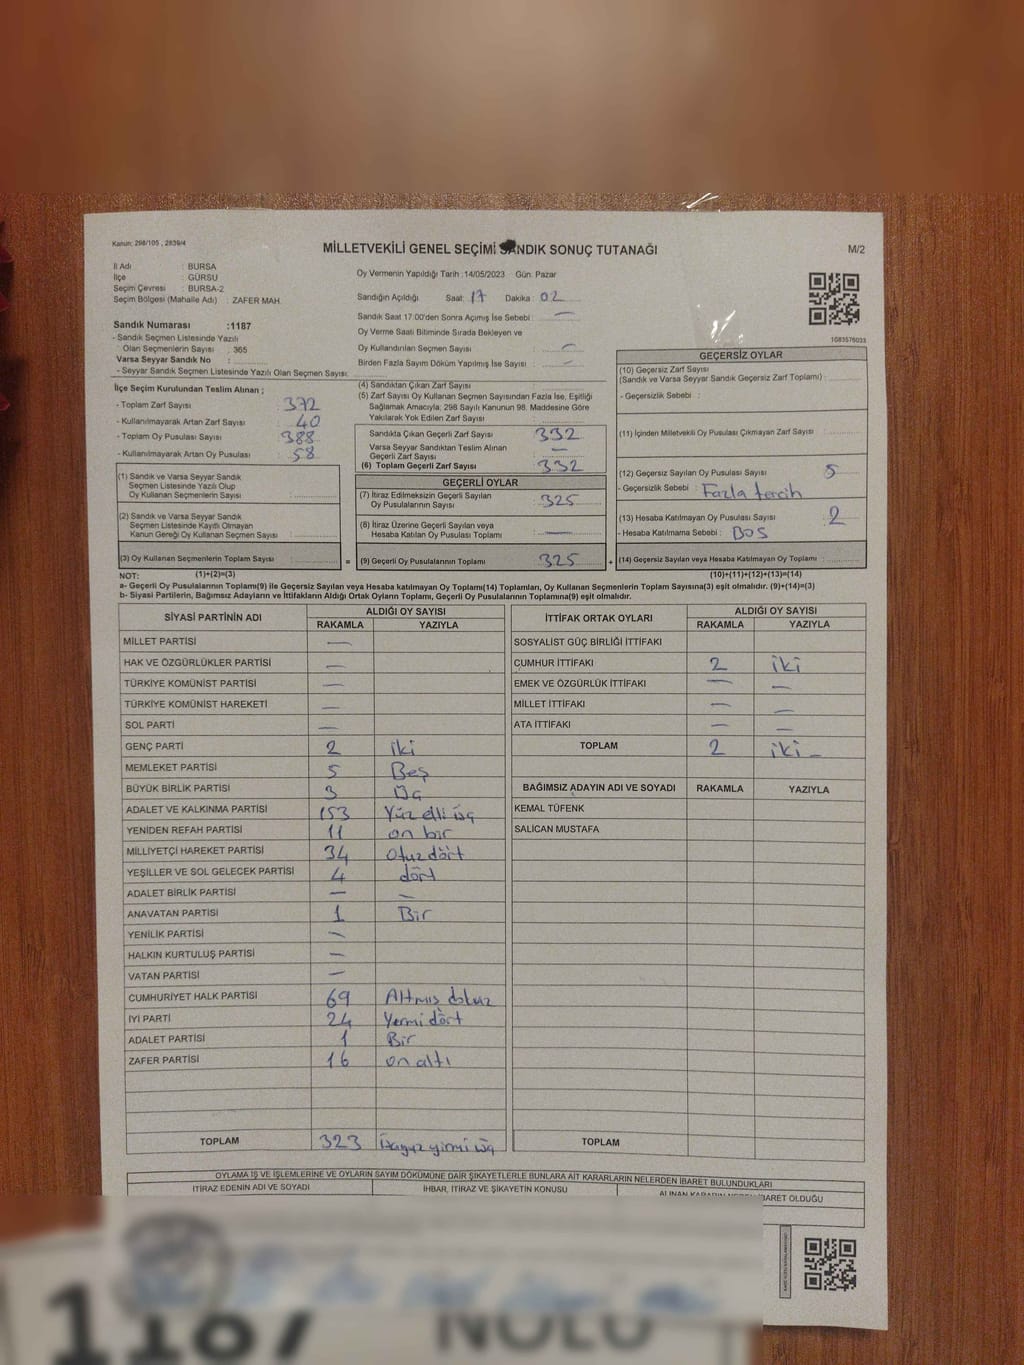 Kanun: 298/105, 2839/4
MİLLETVEKİLİ GENEL SEÇİMİ SANDIK SONUÇ TUTANAĞI
M/2
İl Adı : BURSA
İlçe : GÜRSU
Seçim Çevresi : BURSA-2
Seçim Bölgesi (Mahalle Adı) : ZAFER MAH.
Sandık Numarası :1187
- Sandık Seçmen Listesinde Yazılı
Olan Seçmenlerin Sayısı : 365
Varsa Seyyar Sandık No :
- Seyyar Sandık Seçmen Listesinde Yazılı Olan Seçmen Sayısı:
Oy Vermenin Yapıldığı Tarih :14/05/2023 Gün: Pazar
Sandığın Açıldığı Saat: 17 Dakika : 02
Sandık Saat 17:00'den Sonra Açımış İse Sebebi : —
Oy Verme Saati Bitiminde Sırada Bekleyen ve
Oy Kullandırılan Seçmen Sayısı : —
Birden Fazla Sayım Döküm Yapılmış İse Sayısı : —
1083576033
İlçe Seçim Kurulundan Teslim Alınan ;
- Toplam Zarf Sayısı : 372
- Kullanılmayarak Artan Zarf Sayısı : 40
- Toplam Oy Pusulası Sayısı : 388
- Kullanılmayarak Artan Oy Pusulası : 58
(1) Sandık ve Varsa Seyyar Sandık
Seçmen Listesinde Yazılı Olup
Oy Kullanan Seçmenlerin Sayısı :
(2) Sandık ve Varsa Seyyar Sandık
Seçmen Listesinde Kayıtlı Olmayan
Kanun Gereği Oy Kullanan Seçmen Sayısı :
(3) Oy Kullanan Seçmenlerin Toplam Sayısı : =
(4) Sandıktan Çıkan Zarf Sayısı :
(5) Zarf Sayısı Oy Kullanan Seçmen Sayısından Fazla İse, Eşitliği
Sağlamak Amacıyla; 298 Sayılı Kanunun 98. Maddesine Göre
Yakılarak Yok Edilen Zarf Sayısı :
Sandıkta Çıkan Geçerli Zarf Sayısı : 332
Varsa Seyyar Sandıktan Teslim Alınan
Geçerli Zarf Sayısı : —
(6) Toplam Geçerli Zarf Sayısı : 332
GEÇERLİ OYLAR
(7) İtiraz Edilmeksizin Geçerli Sayılan
Oy Pusulalarının Sayısı : 325
(8) İtiraz Üzerine Geçerli Sayılan veya
Hesaba Katılan Oy Pusulası Toplamı : —
(9) Geçerli Oy Pusulalarının Toplamı : 325 +
GEÇERSİZ OYLAR
(10) Geçersiz Zarf Sayısı
(Sandık ve Varsa Seyyar Sandık Geçersiz Zarf Toplamı) :
- Geçersizlik Sebebi :
(11) İçinden Milletvekili Oy Pusulası Çıkmayan Zarf Sayısı :
(12) Geçersiz Sayılan Oy Pusulası Sayısı : 5
- Geçersizlik Sebebi : Fazla tercih
(13) Hesaba Katılmayan Oy Pusulası Sayısı : 2
- Hesaba Katılmama Sebebi : BOS
(14) Geçersiz Sayılan veya Hesaba Katılmayan Oy Toplamı :
NOT: (1)+(2)=(3) (10)+(11)+(12)+(13)=(14)
a- Geçerli Oy Pusulalarının Toplamı(9) ile Geçersiz Sayılan veya Hesaba katılmayan Oy Toplamı(14) Toplamları, Oy Kullanan Seçmenlerin Toplam Sayısına(3) eşit olmalıdır. (9)+(14)=(3)
b- Siyasi Partilerin, Bağımsız Adayların ve İttifakların Aldığı Ortak Oyların Toplamı, Geçerli Oy Pusulalarının Toplamına(9) eşit olmalıdır.
SİYASİ PARTİNİN ADI ALDIĞI OY SAYISI
RAKAMLA YAZIYLA
MİLLET PARTİSİ —
HAK VE ÖZGÜRLÜKLER PARTİSİ —
TÜRKİYE KOMÜNİST PARTİSİ —
TÜRKİYE KOMÜNİST HAREKETİ —
SOL PARTİ —
GENÇ PARTİ 2 iki
MEMLEKET PARTİSİ 5 Beş
BÜYÜK BİRLİK PARTİSİ 3 Üç
ADALET VE KALKINMA PARTİSİ 153 Yüz elli üç
YENİDEN REFAH PARTİSİ 11 on bir
MİLLİYETÇİ HAREKET PARTİSİ 34 Otuz dört
YEŞİLLER VE SOL GELECEK PARTİSİ 4 dört
ADALET BİRLİK PARTİSİ — —
ANAVATAN PARTİSİ 1 Bir
YENİLİK PARTİSİ —
HALKIN KURTULUŞ PARTİSİ —
VATAN PARTİSİ —
CUMHURİYET HALK PARTİSİ 69 Altmış dokuz
İYİ PARTİ 24 Yermi dört
ADALET PARTİSİ 1 Bir
ZAFER PARTİSİ 16 on altı
TOPLAM 323 üçyüz yirmi üç
İTTİFAK ORTAK OYLARI ALDIĞI OY SAYISI
RAKAMLA YAZIYLA
SOSYALİST GÜÇ BİRLİĞİ İTTİFAKI
CUMHUR İTTİFAKI 2 iki
EMEK VE ÖZGÜRLÜK İTTİFAKI — —
MİLLET İTTİFAKI — —
ATA İTTİFAKI — —
TOPLAM 2 iki —
BAĞIMSIZ ADAYIN ADI VE SOYADI RAKAMLA YAZIYLA
KEMAL TÜFENK
SALİCAN MUSTAFA
TOPLAM
OYLAMA İŞ VE İŞLEMLERİNE VE OYLARIN SAYIM DÖKÜMÜNE DAİR ŞİKAYETLERLE BUNLARA AİT KARARLARIN NELERDEN İBARET BULUNDUKLARI
İTİRAZ EDENİN ADI VE SOYADI İHBAR, İTİRAZ VE ŞİKAYETİN KONUSU ALINAN KARARIN NEDEN İBARET OLDUĞU
1187 NOLU